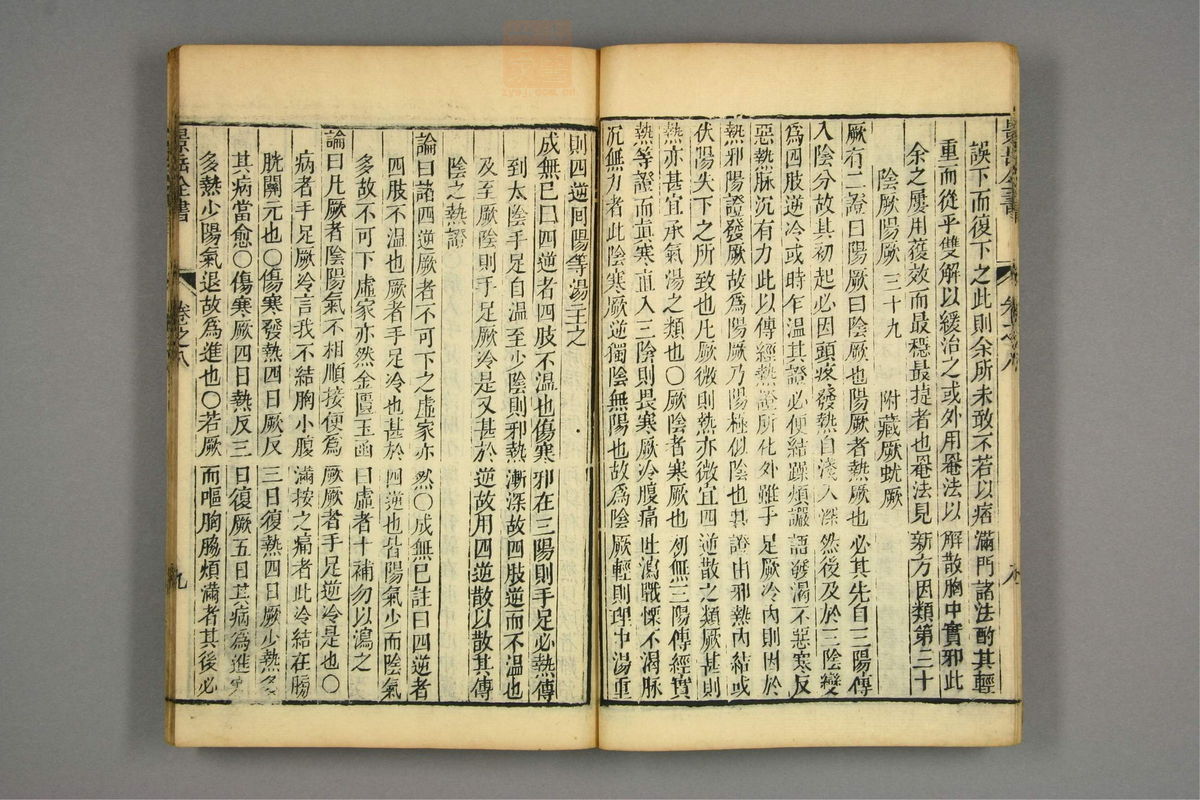 景岳全書 卷之八 八
誤下而復下之此則余所未敢不若以痞滿門諸法酌其輕
重而從乎雙解以緩治之或外用罨法以解散胸中實邪此
余之屢用獲效而最穩最捷者也罨法見新方因類第三十
陰厥陽厥三十九 附藏厥蚘厥
厥有二證曰陽厥曰陰厥也陽厥者熱厥也必其先自三陽傳
入陰分故其初起必因頭疼發熱自淺入深然後及於三陰變
為四肢逆冷或時乍溫其證必便結躁煩讝語發渴不惡寒反
惡熱脉沉有力此以傳經熱證所化外雖手足厥冷內則因於
熱邪陽證發厥故為陽厥乃陽極似陰也其證由邪熱內結或
伏陽失下之所致也凡厥微則熱亦微宜四逆散之類厥甚則
熱亦甚宜承氣湯之類也○厥陰者寒厥也初無三陽傳經實
熱等證而真寒直入三陰則畏寒厥冷腹痛吐瀉戰慄不渴脉
沉無力者此陰寒厥逆獨陰無陽也故為陰厥輕則理中湯重
則四逆回陽等湯主之
成無已曰四逆者四肢不溫也傷寒邪在三陽則手足必熱傳
到太陰手足自溫至少陰則邪熱漸深故四肢逆而不溫也
及至厥陰則手足厥冷是又甚於逆故用四逆散以散其傳
陰之熱證
論曰諸四逆厥者不可下之虛家亦然○成無已註曰四逆者
四肢不溫也厥者手足冷也甚於四逆也皆陽氣少而陰氣
多故不可下虛家亦然金匱玉函曰虛者十補勿以瀉之
論曰凡厥者陰陽氣不相順接便為厥厥者手足逆冷是也○
病者手足厥冷言我不結胸小腹滿按之痛者此冷結在膀
胱關元也○傷寒發熱四日厥反三日復熱四日厥少熱多
其病當愈○傷寒厥四日熱反三日復厥五日其病為進寒
多熱少陽氣退故為進也○若厥而嘔胸脇煩滿者其後必
景岳全書 卷之八 九